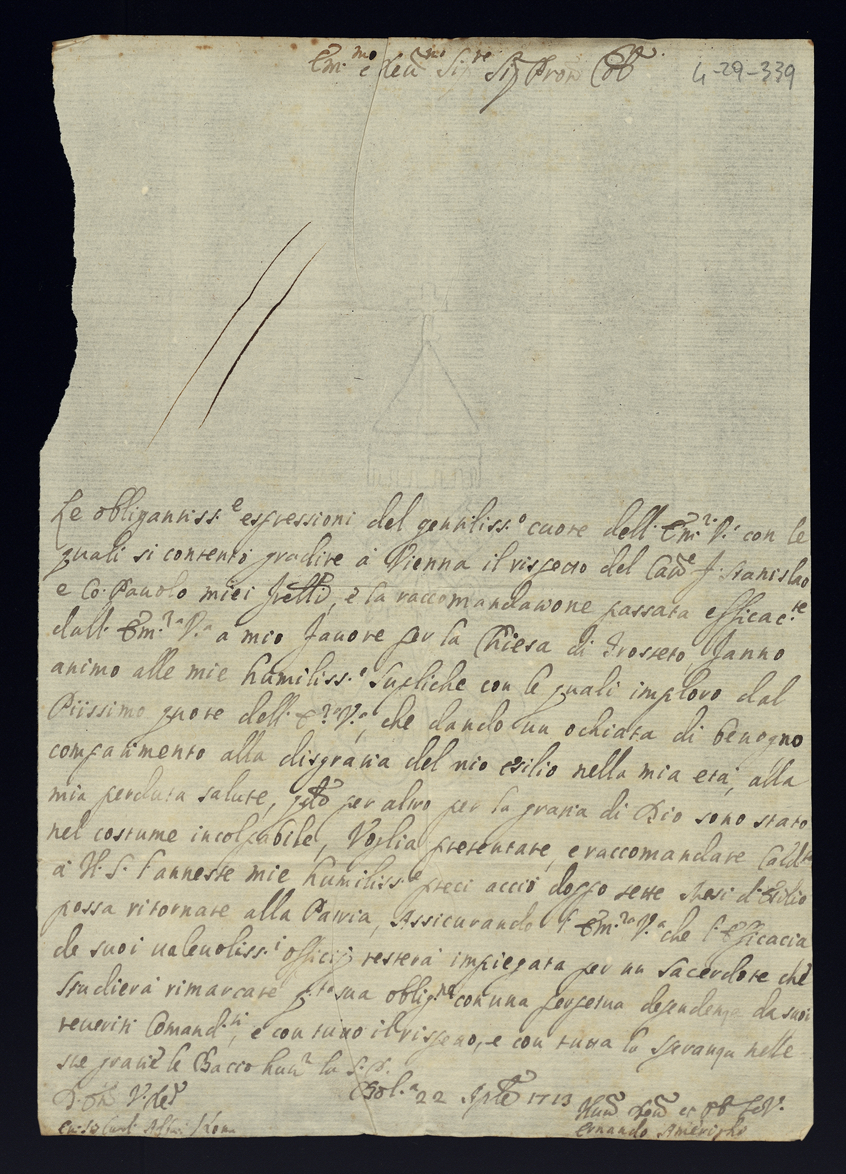 Em.mo e Reu.mo Sig.re Sig. Pron Col.
4-29-339
Le obligantiss.e espressioni del gentiliss.o cuore dell. Em.za V.a con le
quali si contentò gradire à Vienna il rispetto del Cau.e F. Stanislao
e Co. Pauolo miei frelli, e la raccomandazione passata efficac.te
dall. Em.za V.a a mio fauore per la Chiesa di Grosseto, fanno
animo alle mie humiliss.e supliche con le quali imploro dal
Piissimo quore dell. E.za V.a, che dando un ochiata di benigno
compatimento alla disgrazia del mio esilio nella mia età, alla
mia perduta salute, per altro per la grazia di Dio sono stato
nel costume incolpabile, Voglia presentare, e raccomandare
à N.S. l'annesse mie humiliss.e preci acciò doppo sette Mesi d'Esilio
possa ritornare alla Patria, Assicurando l'Em.za V.a che l'Efficacia
de suoi ualeuoliss.i officij resterà impiegata per un sacerdote che
studierà rimarcare sua oblig.ne con una perpetua dependenza da suoi
reueriti Comand.ti, e con tutto il rispetto, e con tutta la speranza nelle
sue grazie le Baccio hum. la S.P.
D. Oh V. Re.
Bol.a 22 Aple 1713
Hum. Deu. et ob. Se.V.